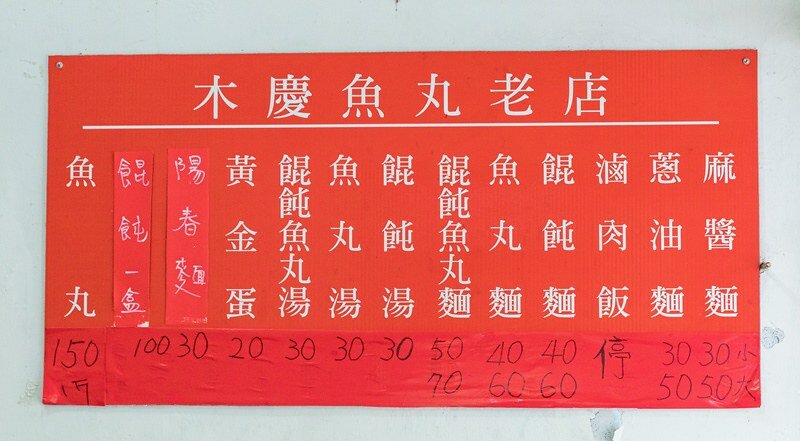 木慶魚丸老店
麻醬麵
30小
50大
蔥油麵
30
50
滷肉飯
停
餛飩麵
40
60
魚丸麵
40
60
餛飩魚丸麵
50
70
餛飩湯
30
魚丸湯
30
餛飩魚丸湯
30
黃金蛋
20
陽春麵
30
餛飩一盒
100
魚丸
150